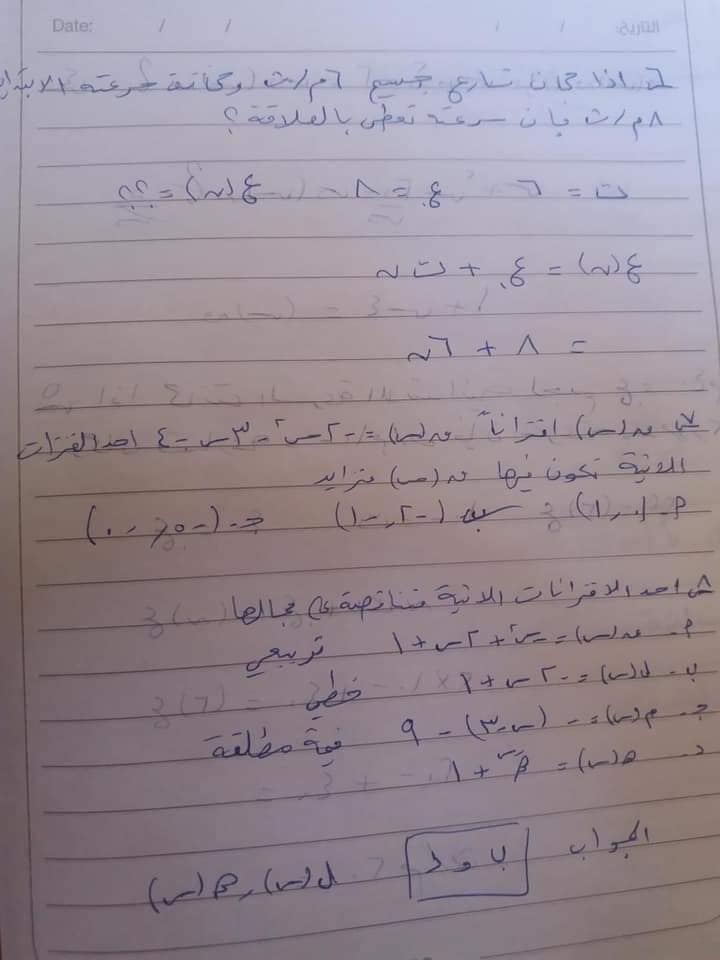 Date: / / التاريخ: / /
س٦ اذا كان تسارع جسيم ٦م/ث وكانت سرعته الابتدا
٨م/ث فإن سرعته تعطى بالعلاقة؟
ت = ٦ ع. = ٨ ع(ن) = ؟؟
ع(ن) = ع. + ت ن
= ٨ + ٦ن
س٧ ق(س) اقتراناً ق(س) = -٢س٢ - ٣س - ٤ احد الفترات
الاتية تكون فيها ق(س) متزايد
P- (١,٠) ب- (-٢, -١) جـ- (-٥, ٠)
س٨ احد الاقترانات الاتية متناقصة على مجالها
P- ق(س) = س٢ + ٢س + ١ تربيعي
ب- ل(س) = -٢س + ١ خطي
جـ- م(س) = -(س-٣) - ٩ قيمة مطلقة
د- هـ(س) = + ٨
الجواب ب و د ل(س) , هـ(س)